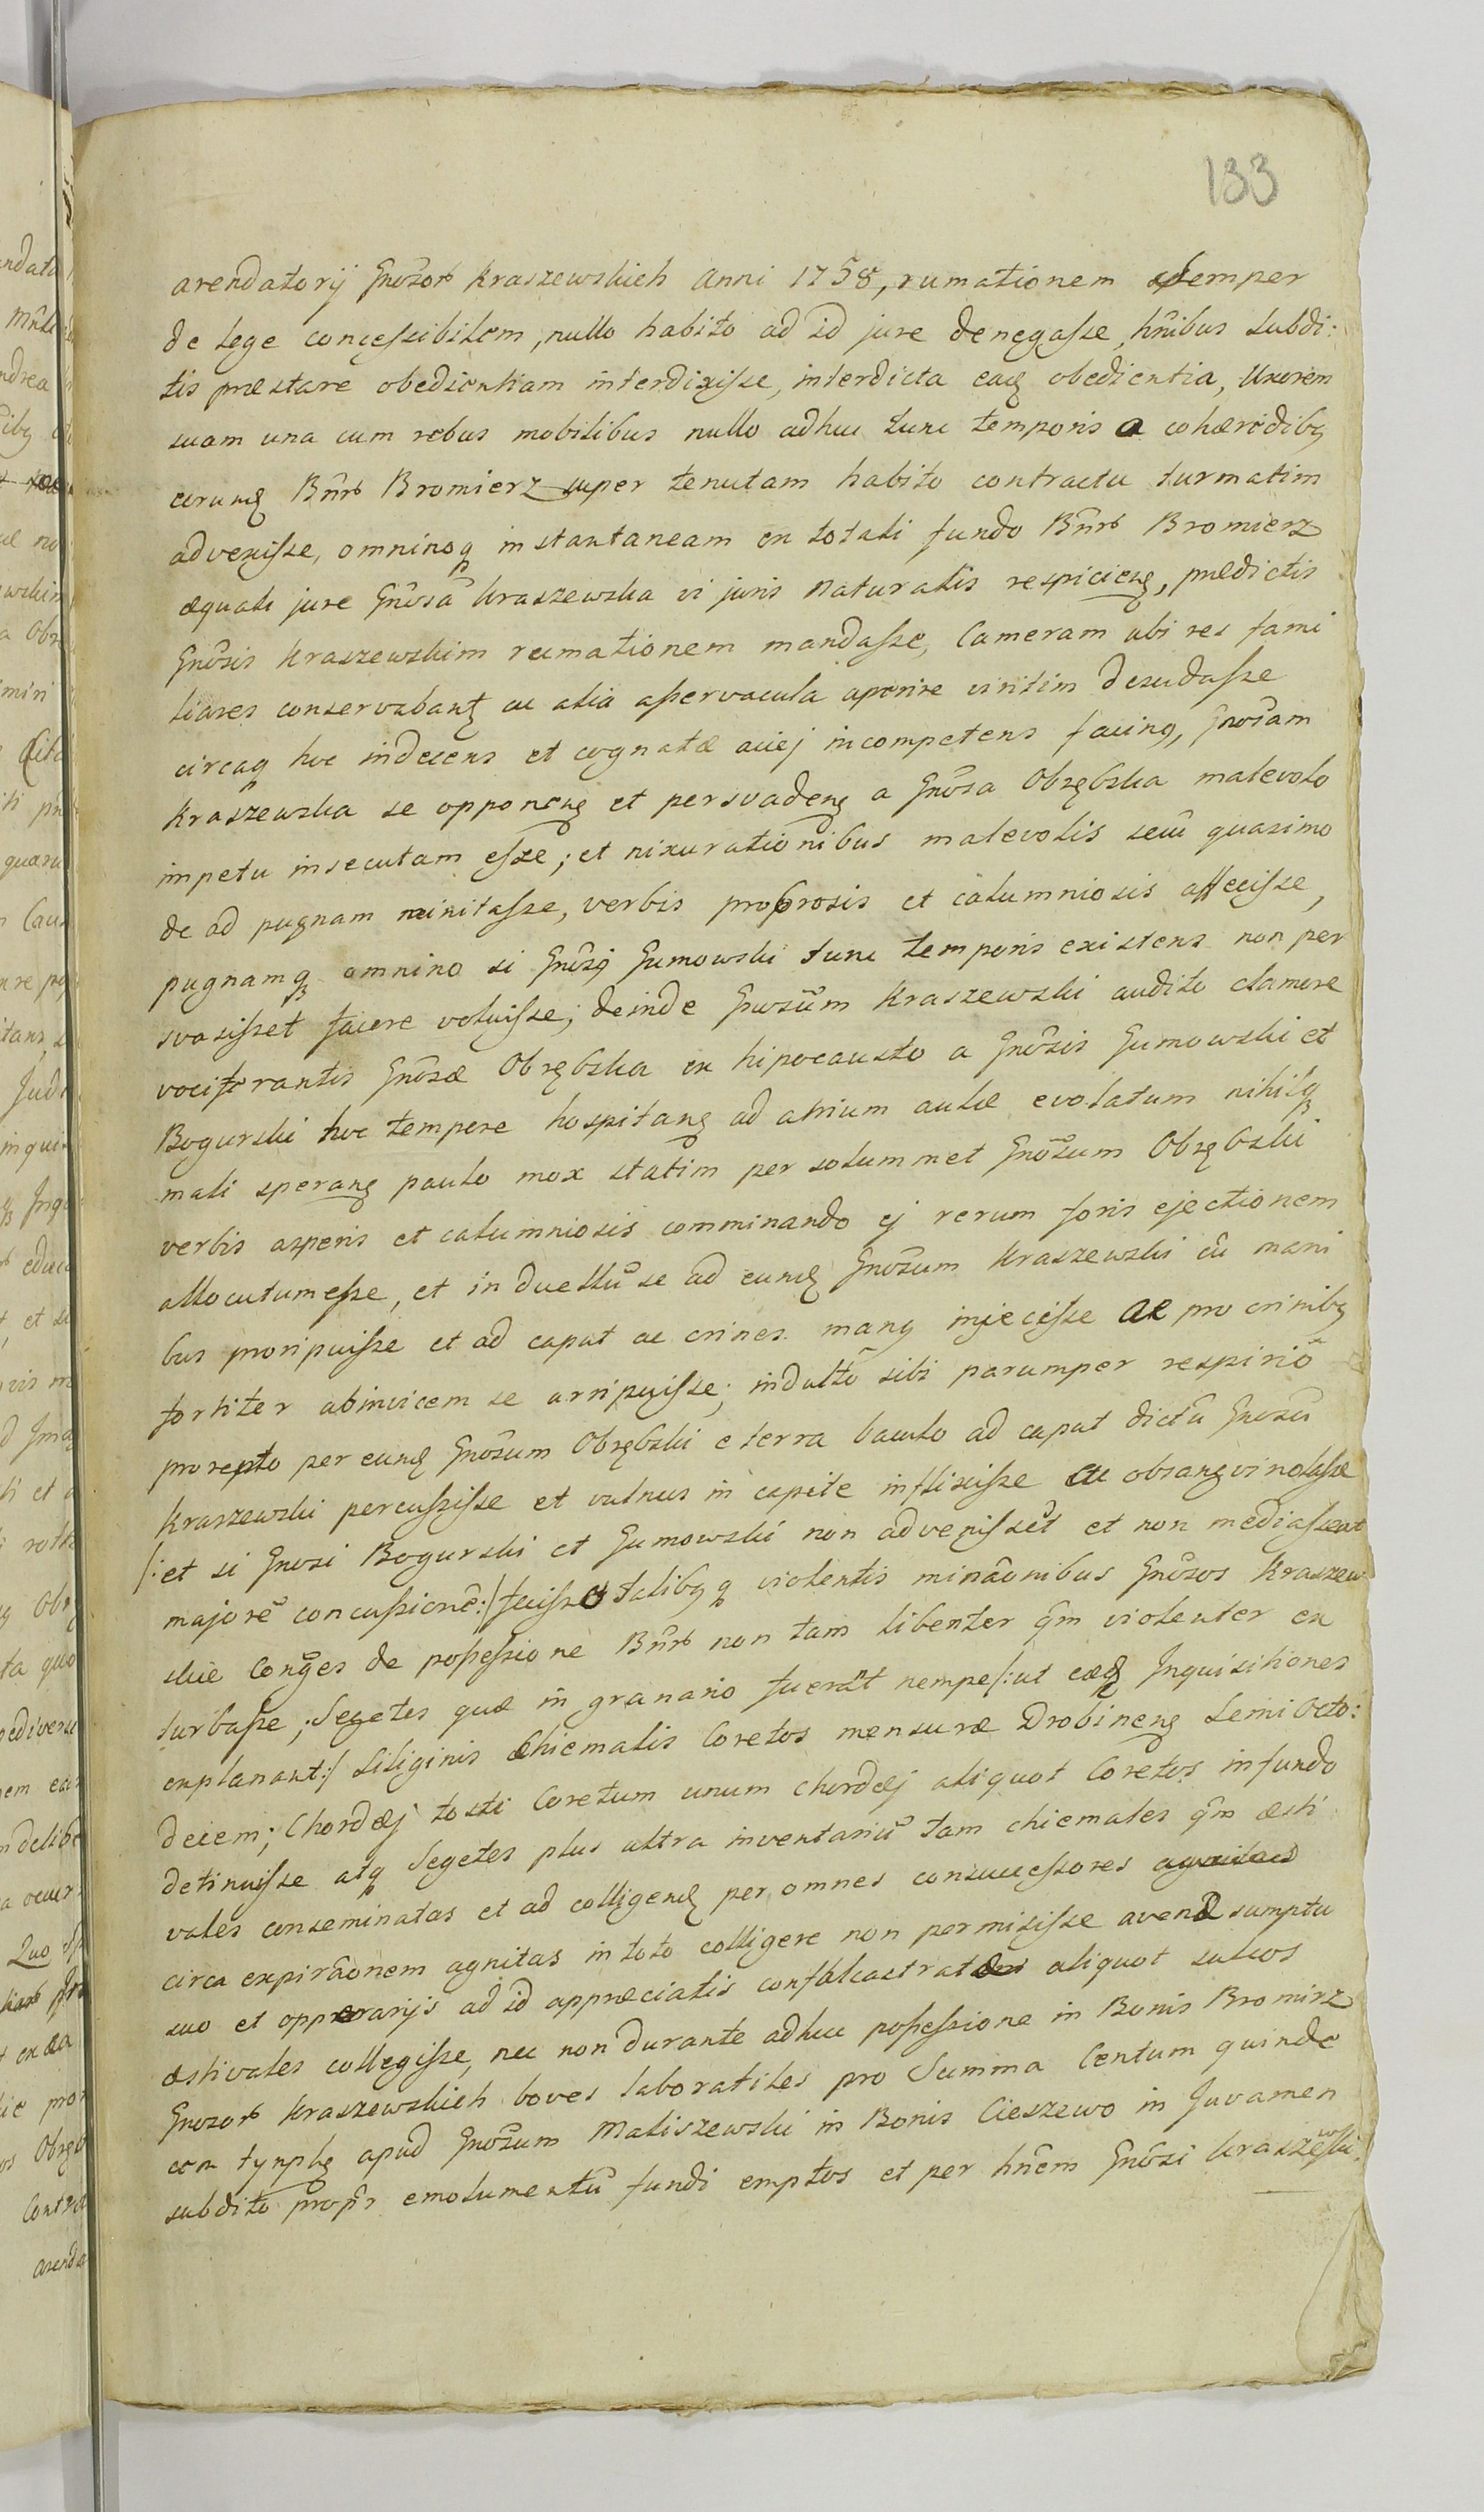 133
arendatorij Gnosor Kraszewskich Anni 1758, rumationem semper
de lege concessibilem, nullo habito ad id jure denegasse, hnibus subdi:
tis præstare obedientiam interdixisse, interdicta eaq obedientia, Uxorem
suam una cum rebus mobilibus nullo adhuc tunc temporis a cohæredibq
eorumq Bnr Bromierz super tenutam habito contractu turmatim
advexisse, omninoq instantaneam ex totali fundo Bnr Bromierz
æquali jure Gnosa Kraszewska vi juris naturalis respicienq, prædictis
Gnosis Kraszewskim rumationem mandasse, Cameram ubi res fami
liares conservabant ac alia asservacula aperire viritim desudasse
circaq hoc indecens et cognatæ aciej incompetens facinq, Gnosam
Kraszewska se opponenq et persvadenq a Gnosa Obrębska malevolo
impetu insecutam esse; et nixurationibus malevolis seu quasimo
de ad pugnam minitasse, verbis probrosis et calumniosis affecisse,
pugnamq omnino si Gnosq Gumowski tunc temporis existens non per
svasisset facere voluisse; deinde Gnosum Kraszewski audito clamore
vociferantis Gnosæ Obrębska ex hipocausto a Gnosis Gumowski et
Bogurski hoc tempore hospitanq ad atrium aulæ evolatum nihilq
mali speranq paulo mox statim per solummet Gnosum Obrębski
verbis asperis et calumniosis comminando ej rerum foris ejectionem
allocutum esse, et in duellu se ad eumq Gnosum Kraszewski cu mani
bus proripuisse et ad caput ac crines manq injecisse ac pro crinibq
fortiter abinvicem se arripuisse; indulto sibi parumper respirio
prorepto per eumq Gnosum Obrębski e terra baculo ad caput dictu Gnosu
Kraszewski percussisse et vulnus in capite inflixisse ac obsangvinolasse
/:et si Gnosi Bogurski et Gumowski non advenisset et non mediassent
majore concussione:/ fuisse talibqq violentis minaonibus Gnosos Kraszew
skie Conges de possessione Bnr non tam libenter qm violenter ex
turbasse; Segetes quæ in granario fuerant nempe/:ut eædq Inquisitiones
explanant:/ Siliginis Chiemalis Coretos mensuræ Drobinenq Semi Octo:
decem; Chordej tosti Coretum unum chordej aliquot Coretos in fundo
detinuisse atq Segetes plus ultra inventariu tam chiemales qm æsti
vales conseminatas et ad colligenq per omnes consuccessores
circa expiraonem agnitas in toto colligere non permisisse avenæ sumptu
suo et opperarijs ad id appræciatis confalcastratæ aliquot sulcos
æstivales collegisse, nec non durante adhuc possessione in Bonis Bromirz
Gnosor Kraszewskich boves laboratiles pro Summa Centum quinde
cem tynphq apud Gnosum Maliszewski in Bonis Cieszewo in Juvamen
subdito propr emolumentu fundi emptos et per hnem Gnosi Kraszewski